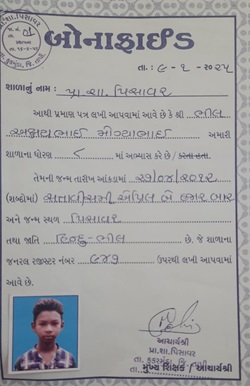 બોનાફાઈડ
તા.: ૯-૧-૨૦૨૫
શાળાનું નામ : પ્રા.શા. પિસાવર
આથી પ્રમાણ પત્ર લખી આપવામાં આવે છે કે શ્રી ભીલ
ભાઈ ભાઈ અમારી
શાળાના ધોરણ ૮ માં અભ્યાસ કરે છે /
તેમની જન્મ તારીખ આંકડામાં ૨૭/૦૪/૨૦૧૨
(શબ્દોમાં) સત્તાવીસમી એપ્રિલ બે હજાર બાર
અને જન્મ સ્થળ પિસાવર
તથા જાતિ હિન્દુ-ભીલ છે. જે શાળાના
જનરલ રજીસ્ટર નંબર ઉપરથી લખી આપવામાં
આવે છે.
આચાર્યશ્રી
પ્રા.શા.પિસાવર
તા. કુકરમુંડા, જિ. તાપી
મુખ્ય શિક્ષક / આચાર્યશ્રી